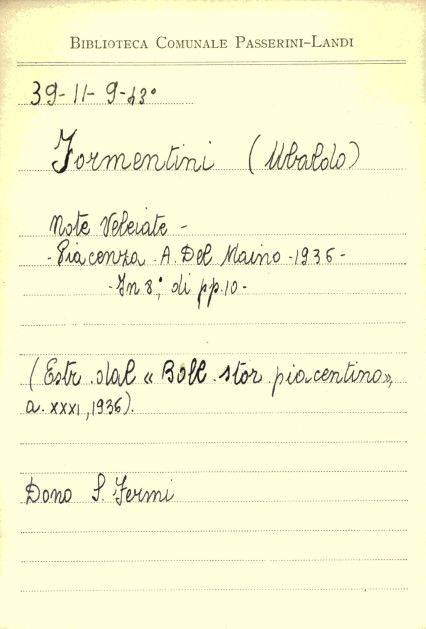 BIBLIOTECA COMUNALE PASSERINI-LANDI
39-11-9-43°
Formentini (Ubaldo)
Note Veleiate -
- Piacenza. A. Del Maino - 1936 -
- In 8°, di pp. 10 -
(Estr. dal « Boll. stor. piacentino»,
a. XXXI, 1936).
Dono S. Fermi